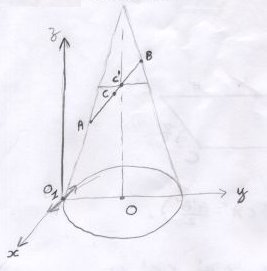 z
B
C'
C
A
O₁
O
y
x